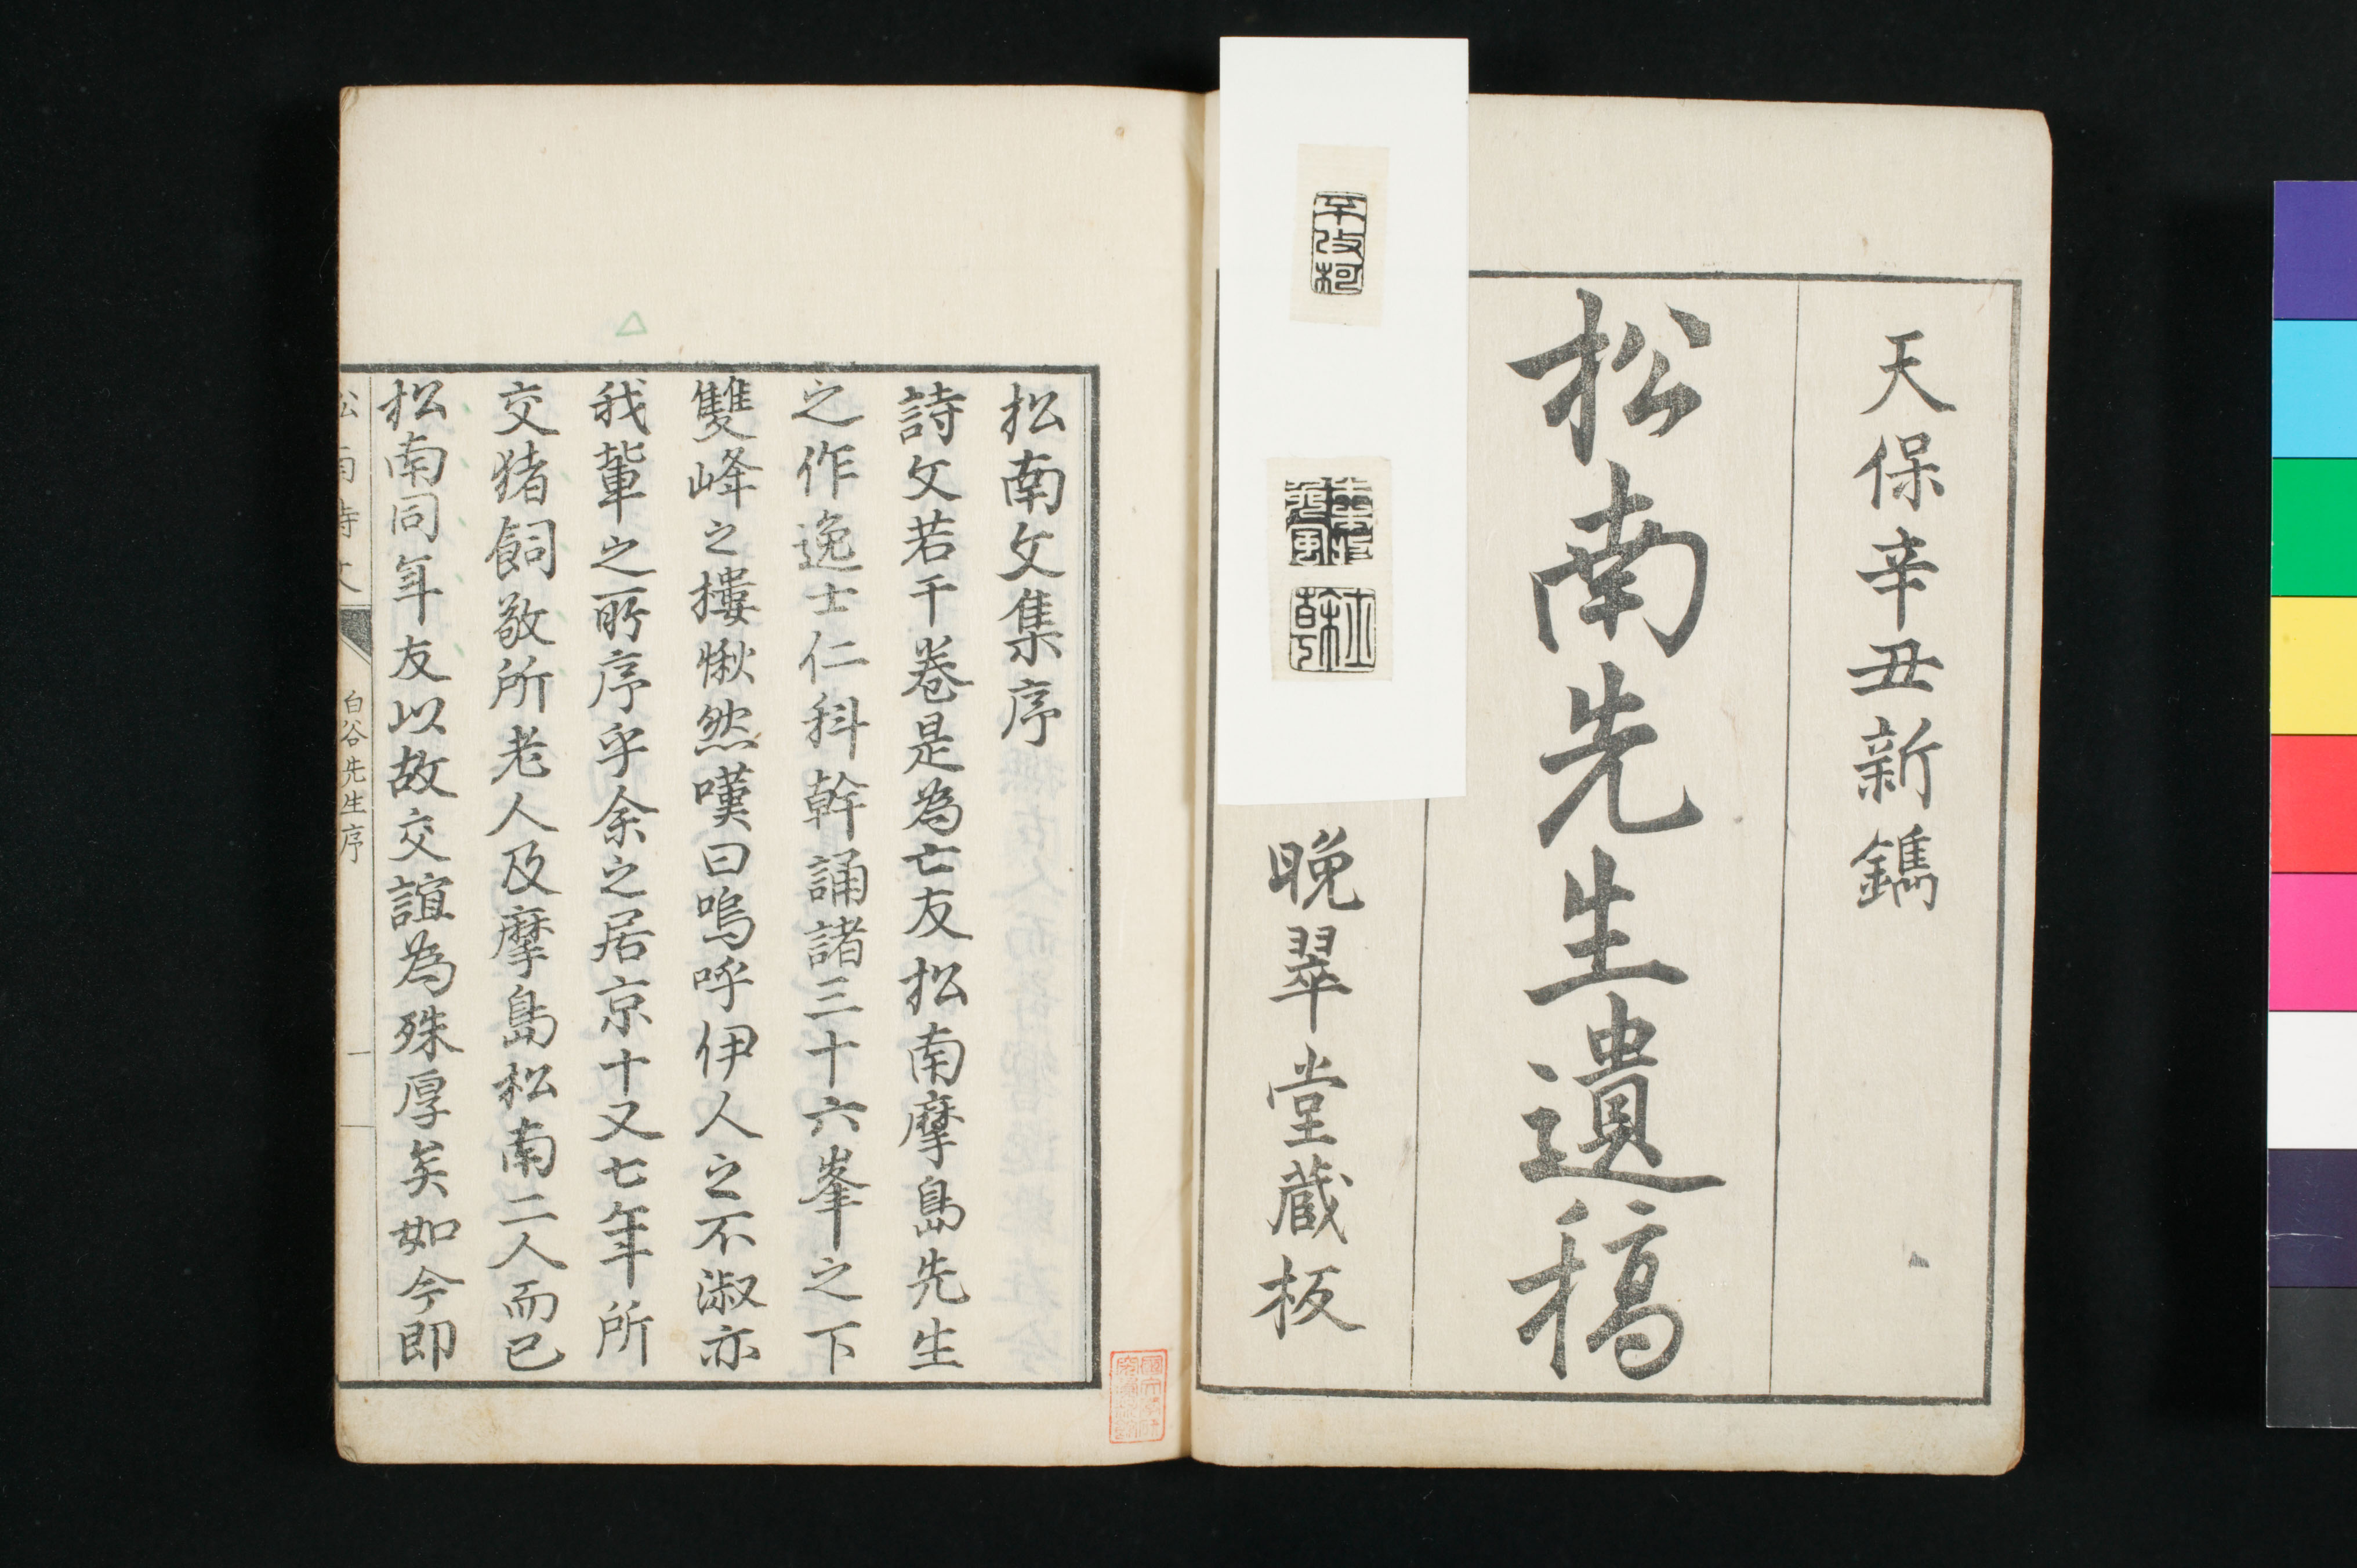 天保辛丑新鐫
松南先生遺稿
晩翠堂蔵板
松南文集序
詩文若干卷是為亡友松南摩島先生
之作逸士仁科幹誦諸三十六峯之下
雙峰之樓愀然嘆曰嗚呼伊人之不淑亦
我輩之所序乎余之居京十又七年所
交猪飼敬所老人及摩島松南二人而已
松南同年友以故交誼為殊厚矣如今即
松南詩文
白谷先生序
一